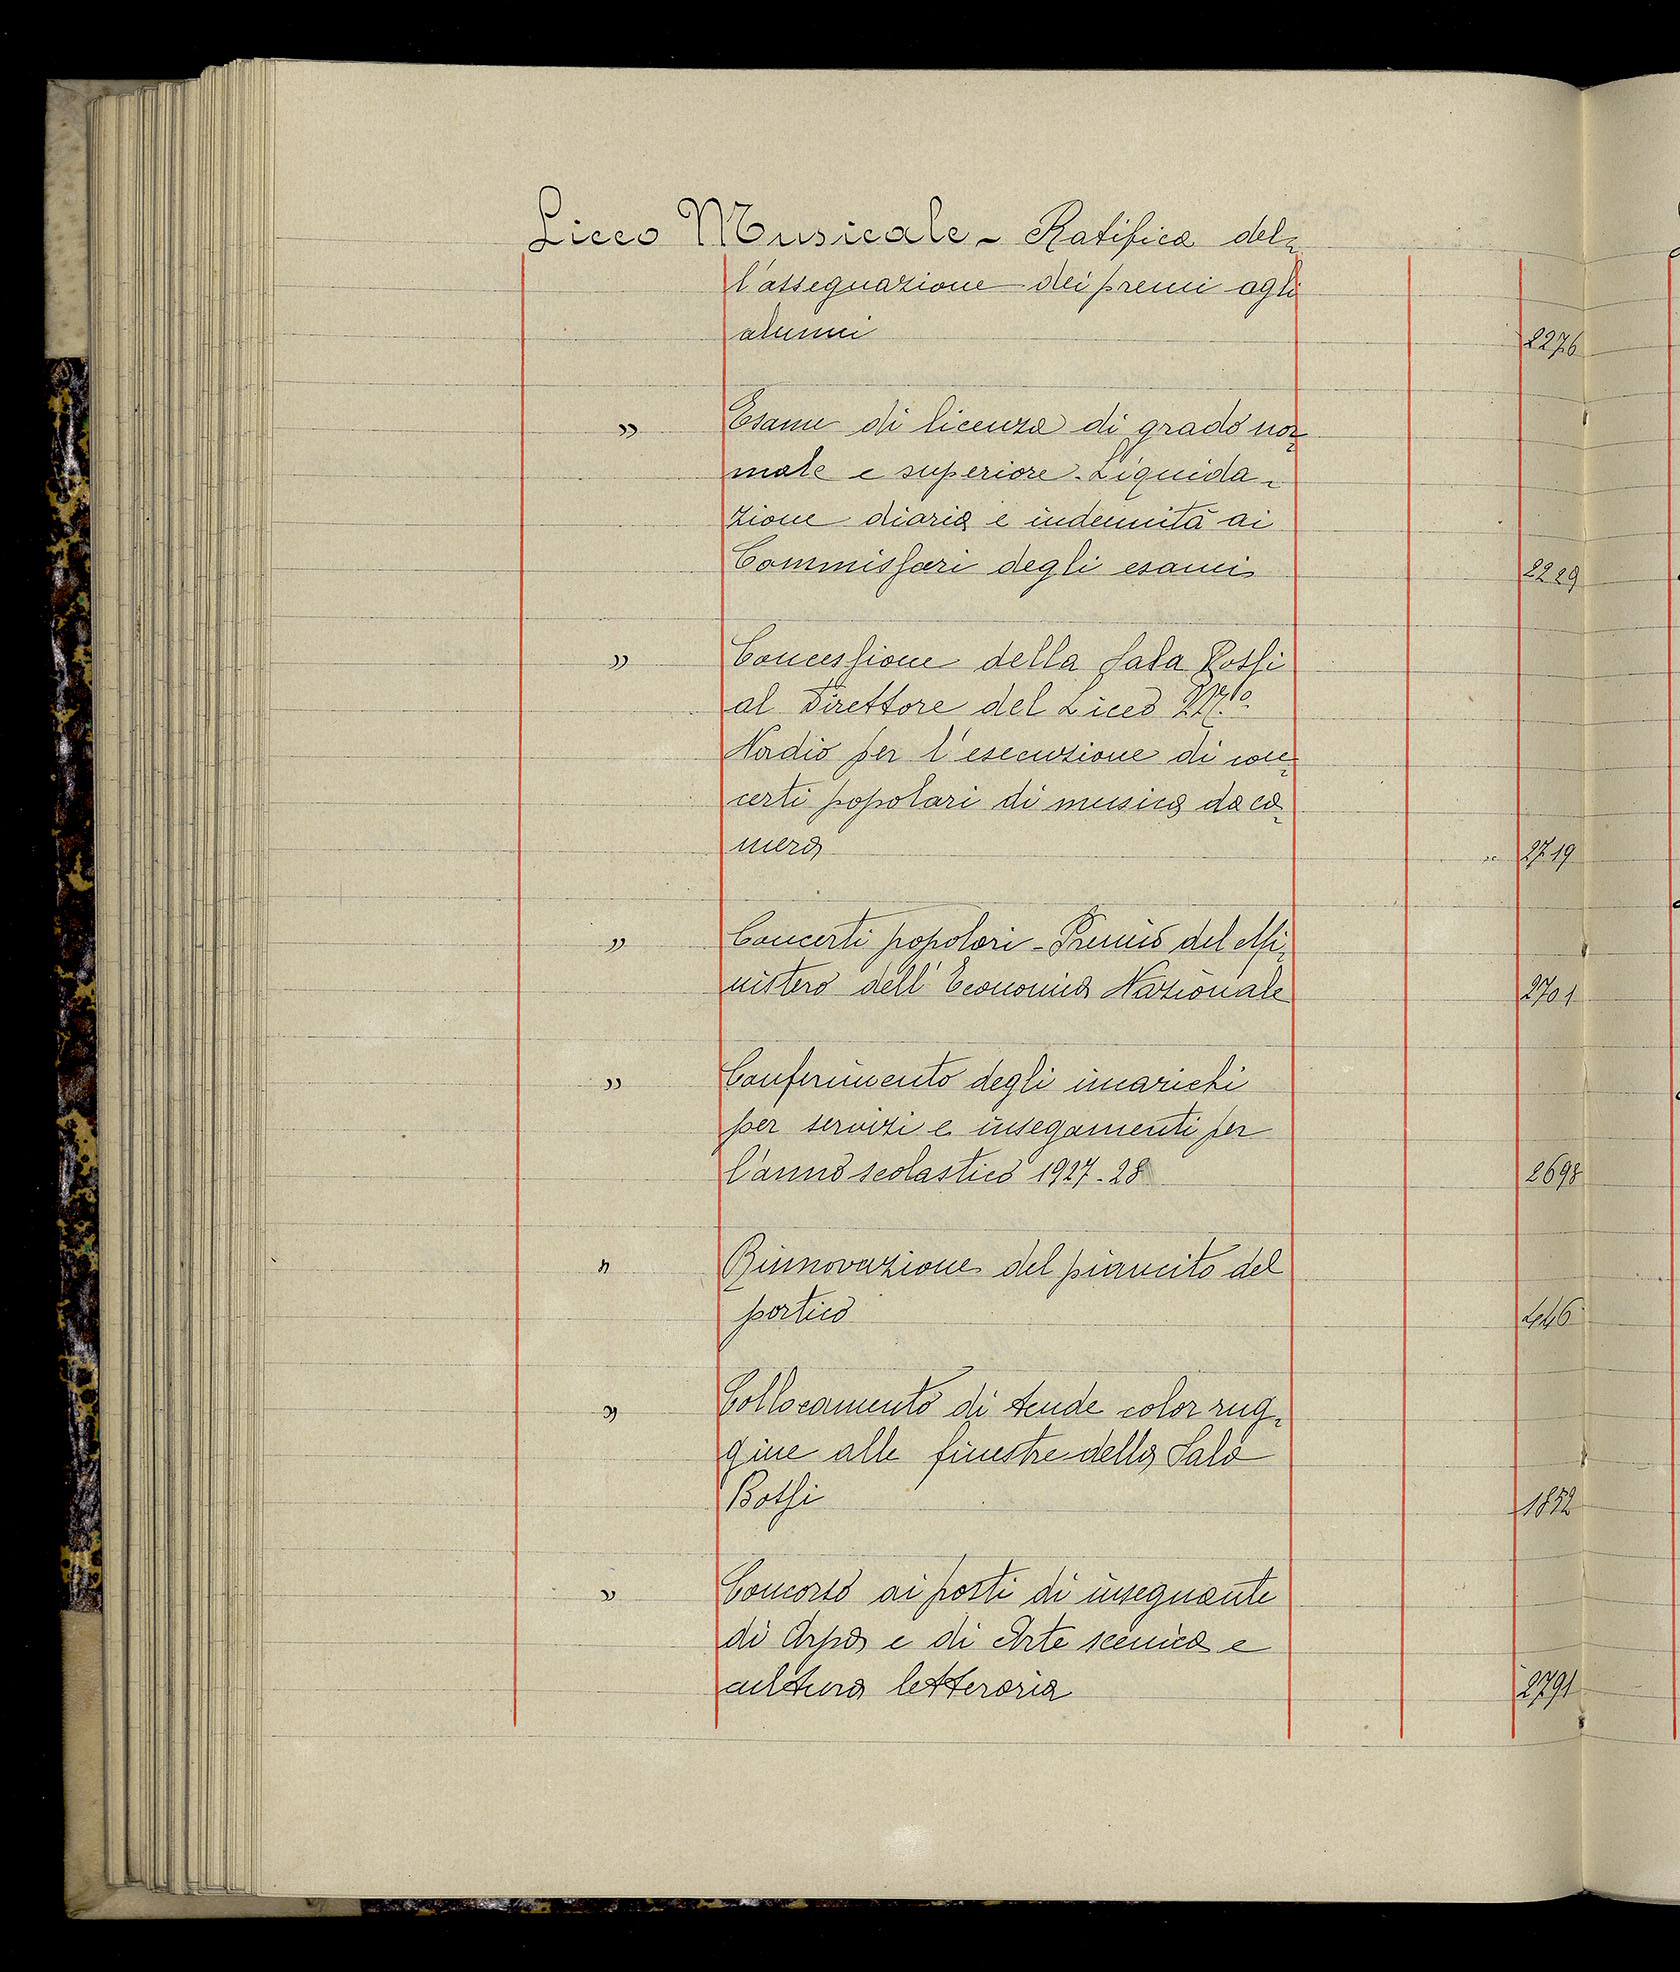 Liceo Musicale - Ratifica del=
l'assegnazione dei premi agli
alunni 2276
" Esame di licenza di grado nor=
male e superiore. Liquida=
zione diaria e indennità ai
Commissari degli esami 2229
" Concessione della Sala Bossi
al Direttore del Liceo M.o
Nordio per l'esecuzione di con=
certi popolari di musica da ca=
mera " 2719
" Concerti popolari - Premio del Mi=
nistero dell'Economia Nazionale 2701
" Conferimento degli incarichi
per servizi e insegamenti per
l'anno scolastico 1927-28 2698
" Rinnovazione del piancito del
portico 446
" Collocamento di tende color rug=
gine alle finestre della Sala
Bossi 1852
" Concorso ai posti di insegnante
di Arpa e di Arte scenica e
cultura letteraria 2791